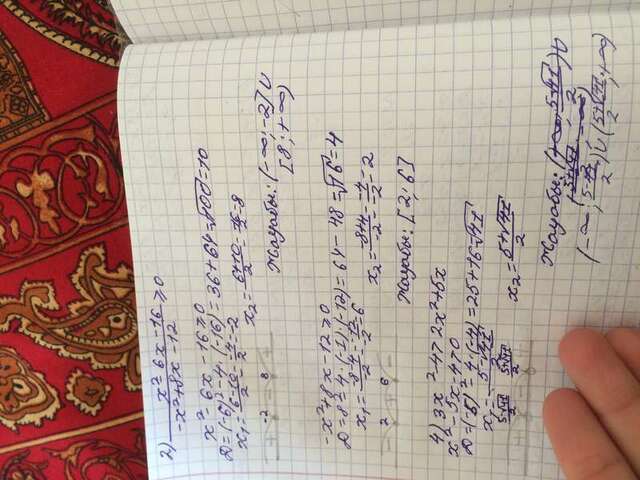 2) x² - 6x - 16 / -x² + 8x - 12 ≥ 0
x² - 6x - 16 ≥ 0
D = (-6)² - 4 · (-16) = 36 + 64 = √100 = 10
x₁ = 6-10/2 = -4/2 = -2    x₂ = 6+10/2 = 16/2 = 8
-2    8
Жауабы: (-∞; -2] ∪
[8; +∞)
-x² + 8x - 12 ≥ 0
D = 8² 4 · (-1) · (-12) = 64 - 48 = √16 = 4
x₁ = -8-4/-2 = -12/-2 = 6    x₂ = -8+4/-2 = -4/-2 = 2
2    6
Жауабы: [2; 6]
4) 3x² - 4 > 2x² + 5x
x² - 5x - 4 > 0
D = (-5)² 4 · (-4) = 25 + 16 = √41
x₁ = 5-√41/2    x₂ = 5+√41/2
5-√41/2    5+√41/2
Жауабы:
(-∞; 5-√41/2) ∪ (5+√41/2; +∞)